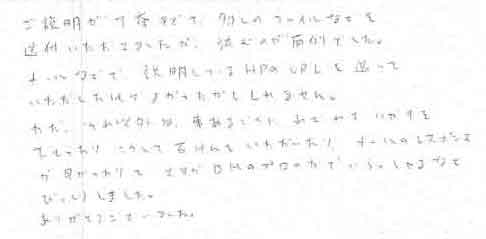 ご説明が丁寧すぎて、多しのファイルなどを
送付いただきましたが、読むのが面倒でした。
メールなどで、説明しているHPのURLを送って
いただした方がよかったかもしれません。
ただ、それ以外は、事あるごとに、
こうして石けんをいただいたり、メールのレスポンス
が早かったりと、さすがDMのプロの方でいらっしゃるなと
びっくりしました。
ありがとうございました。